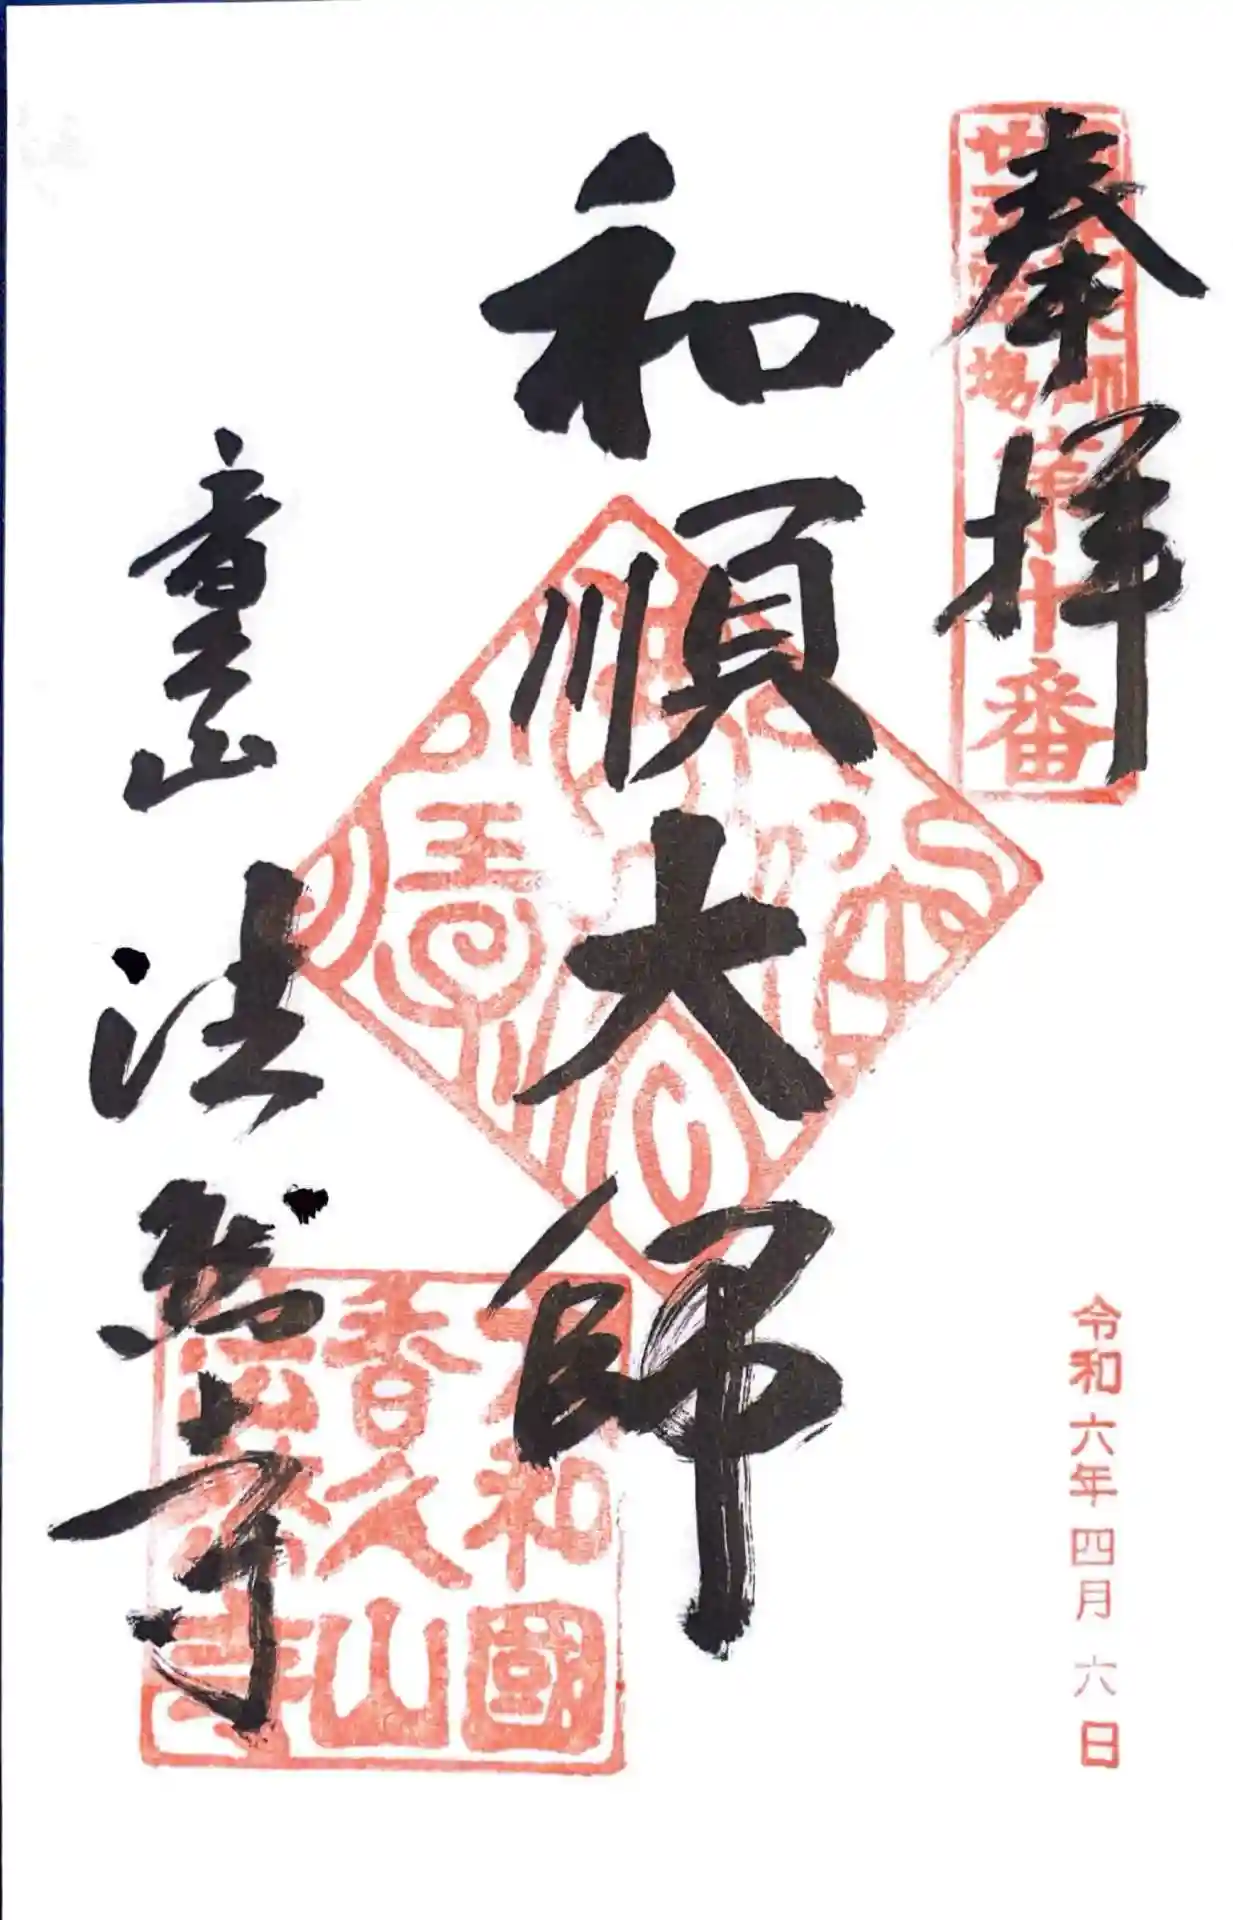 奉拝
第十番
和順大師
香久山 法然寺
大和國
香久山
法然寺
令和六年四月六日